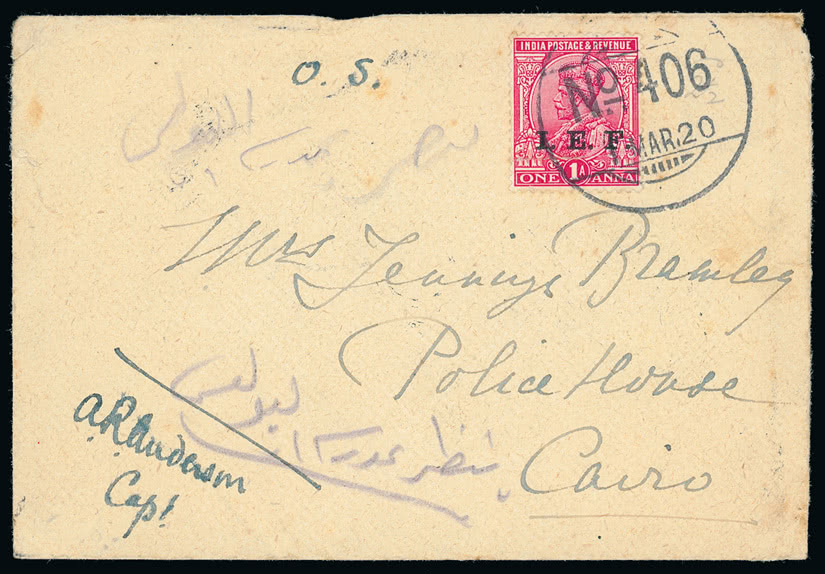 O. S.
INDIA POSTAGE & REVENUE
I. E. F.
ONE 1A ANNA
No. 406
MAR.20
Mrs Jennings Bramley
Police House
Cairo
A.R. Anderson
Capt